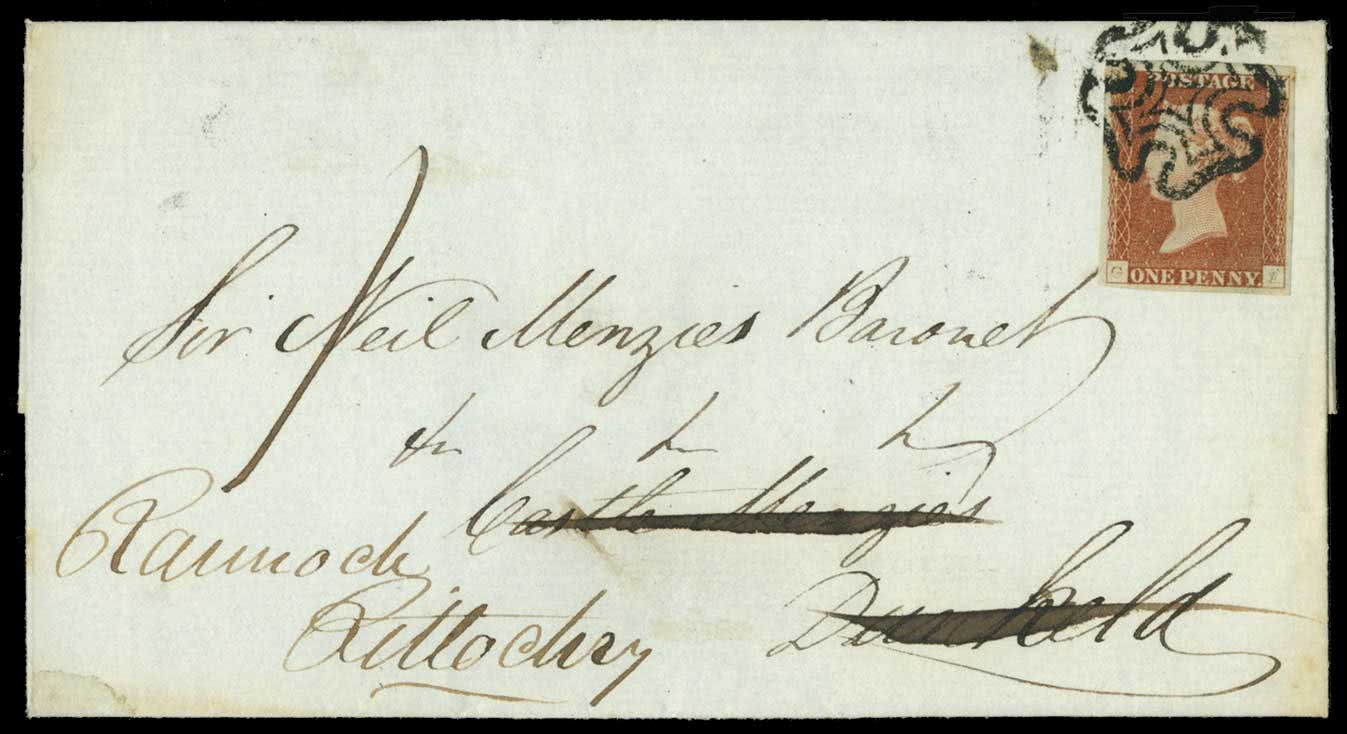 POSTAGE
ONE PENNY.
G E
1
Sir Neil Menzies Baronet
&c &c &c
Castle Menzies
Dunkeld
Rannoch
Pitlochry